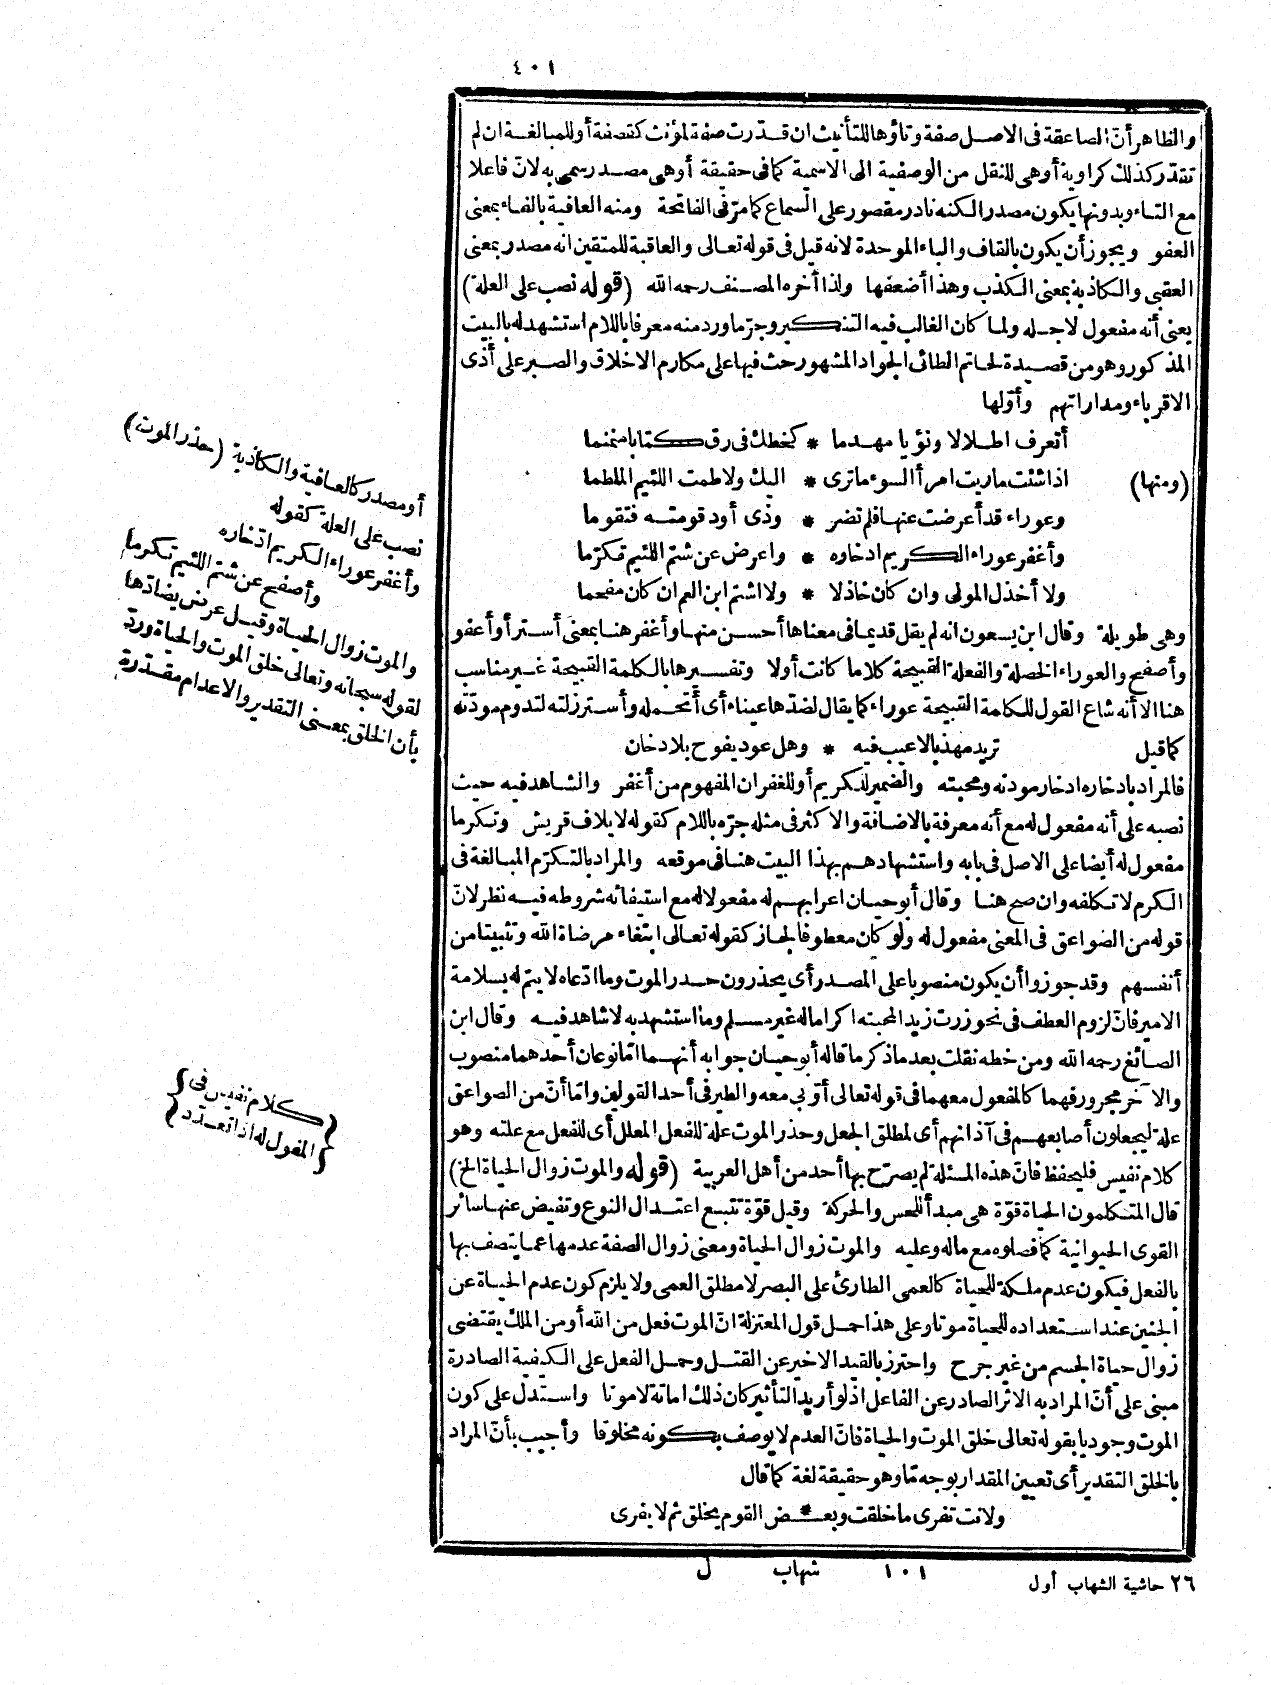 ٤٠١
والظاهر أنّ الصاعقة فى الاصل صفة وتاؤها للتأنيث ان قدّرت صفة لمؤنث كقصفة أو للمبالغة ان لم
تقدّر كذلك كراوية أو هى للنقل من الوصفية الى الاسمية كما فى حقيقة أو هى مصدر سمى به لانّ فاعلا
مع التاء وبدونها يكون مصدر الكنه نادر مقصور على السماع كما مرّ فى الفاتحة ومنه العافية بالفاء بمعنى
العفو ويجوز أن يكون بالقاف والباء الموحدة لانه قيل فى قوله تعالى والعاقبة للمتقين انه مصدر بمعنى
العقبى والكاذبة بمعنى الكذب وهذا أضعفها ولذا أخره المصنف رحمه الله (قوله نصب على العلة)
يعنى أنه مفعول لاجله ولما كان الغالب فيه التنكير وجرّ ما ورد منه معرفا باللام استشهد له بالبيت
المذكور وهو من قصيدة لحاتم الطائى الجواد المشهور حث فيها على مكارم الاخلاق والصبر على أذى
الاقرباء ومداراتهم وأوّلها
أتعرف اطلالا ونؤيا مهدما * كخطك فى رق كتابا منمنما
(ومنها) اذا شئت ماريت امرأ السوء ما ترى * اليك ولا طمت اللئيم الملطما
وعوراء قد أعرضت عنها فلم تضر * وذى أود قومته فتقوما
وأغفر عوراء الكريم ادخاره * واعرض عن شتم اللئيم تكرّما
ولا أخذل المولى وان كان خاذلا * ولا اشتم ابن العم ان كان مفحما
وهى طويلة وقال ابن يسعون انه لم يقل قديما فى معناها أحسن منها وأغفر هنا بمعنى أستر أو أعفو
وأصفح والعوراء الخصلة والفعلة القبيحة كلاما كانت أولا وتفسيرها بالكلمة القبيحة غير مناسب
هنا الا أنه شاع القول للكلمة القبيحة عوراء كما يقال لضدّها عيناء أى أتحمله وأستر زلته لتدوم مودّته
كما قيل تريد مهذبا لا عيب فيه * وهل عود يفوح بلا دخان
فالمراد بادخاره ادخار مودته ومحبته والضمير للكريم أو للغفران المفهوم من أغفر والشاهد فيه حيث
نصبه على أنه مفعول له مع أنه معرفة بالاضافة والاكثر فى مثله جرّه باللام كقوله لايلاف قريش وتكرما
مفعول له أيضا على الاصل فى بابه واستشهادهم بهذا البيت هنا فى موقعه والمراد بالتكرّم المبالغة فى
الكرم لا تكلفه وان صح هنا وقال أبو حيان اعرابهم له مفعولا له مع استيفائه شروطه فيه نظر لانّ
قوله من الصواعق فى المعنى مفعول له ولو كان معطوفا لجاز كقوله تعالى ابتغاء مرضاة الله وتثبيتا من
أنفسهم وقد جوزوا أن يكون منصوبا على المصدر أى يحذرون حذر الموت وما ادّعاه لا يتم له بسلامة
الامير فانّ لزوم العطف فى نحو زرت زيدا لمحبته اكراما له غير مسلم وما استشهد به لا شاهد فيه وقال ابن
الصائغ رحمه الله ومن خطه نقلت بعد ما ذكر ما قاله أبو حيان جوابه أنهما امّا نوعان أحدهما منصوب
والآخر مجرور فهما كالمفعول معهما فى قوله تعالى أوّبى معه والطير فى أحد القولين وامّا أنّ من الصواعق
علة ليجعلون أصابعهم فى آذانهم أى لمطلق الجعل وحذر الموت علة للفعل المعلل أى للفعل مع علته وهو
كلام نفيس فليحفظ فانّ هذه المسئلة لم يصرّح بها أحد من أهل العربية (قوله والموت زوال الحياة الخ)
قال المتكلمون الحياة قوّة هى مبدأ للحس والحركة وقيل قوّة تتبع اعتدال النوع وتفيض عنها سائر
القوى الحيوانية كما فصلوه مع ماله وعليه والموت زوال الحياة ومعنى زوال الصفة عدمها عما يتصف بها
بالفعل فيكون عدم ملكة للحياة كالعمى الطارئ على البصر لا مطلق العمى ولا يلزم كون عدم الحياة عن
الجنين عند استعداده للحياة موتا وعلى هذا حمل قول المعتزلة انّ الموت فعل من الله أو من الملك يقتضى
زوال حياة الجسم من غير جرح واحترز بالقيد الاخير عن القتل وحمل الفعل على الكيفية الصادرة
مبنى على أنّ المراد به الاثر الصادر عن الفاعل اذ لو أريد التأثير كان ذلك اماتة لا موتا واستدل على كون
الموت وجوديا بقوله تعالى خلق الموت والحياة فانّ العدم لا يوصف بكونه مخلوقا وأجيب بأنّ المراد
بالخلق التقدير أى تعيين المقدار بوجه ما وهو حقيقة لغة كما قال
ولانت تفرى ما خلقت وبعـ*ـض القوم يخلق ثم لا يفرى
٢٦ حاشية الشهاب أول ١٠١ شهاب ل
أو مصدر كالعافية والكاذبة (حذر الموت)
نصب على العلة كقوله
وأغفر عوراء الكريم ادخاره
وأصفح عن شتم اللئيم تكرما
والموت زوال الحياة وقيل عرض يضادّها
لقوله سبحانه وتعالى خلق الموت والحياة وردّ
بأن الخلق بمعنى التقدير والاعدام مقدّرة
كلام نفيس فى
المفعول له اذا تعدّد